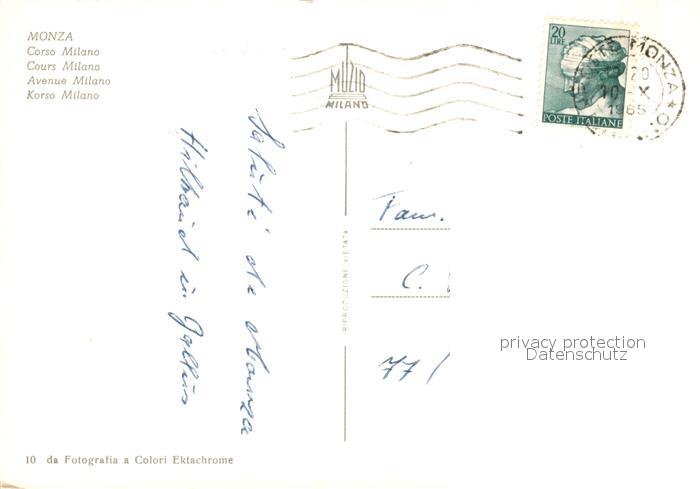 MONZA
Corso Milano
Cours Milano
Avenue Milano
Korso Milano
MUZIO
MILANO
20
LIRE
POSTE ITALIANE
MONZA
20
10 X
1965
Saluti da Monza
in
RIPRODUZIONE VIETATA
Fam.
C.
77
privacy protection
Datenschutz
10 da Fotografia a Colori Ektachrome